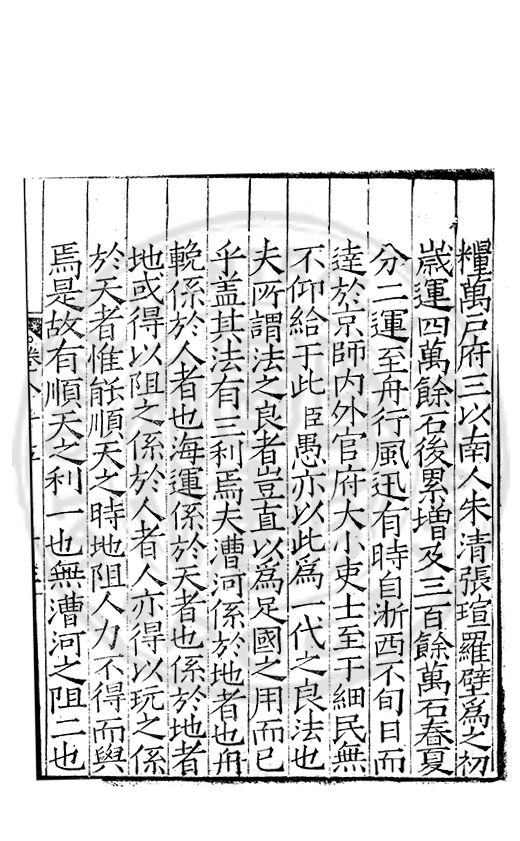 糧萬户府三以南人朱清張瑄羅璧爲之初
歲運四萬餘石後累增及三百餘萬石春夏
分二運至舟行風迅有時自浙西不旬日而
達於京師内外官府大小吏士至于細民無
不仰給于此臣愚亦以此爲一代之良法也
夫所謂法之良者豈直以爲足國之用而已
乎盖其法有三利焉夫漕河係於地者也舟
輓係於人者也海運係於天者也係於地者
地或得以阻之係於人者人亦得以玩之係
於天者惟能順天之時地阻人力不得而與
焉是故有順天之利一也無漕河之阻二也